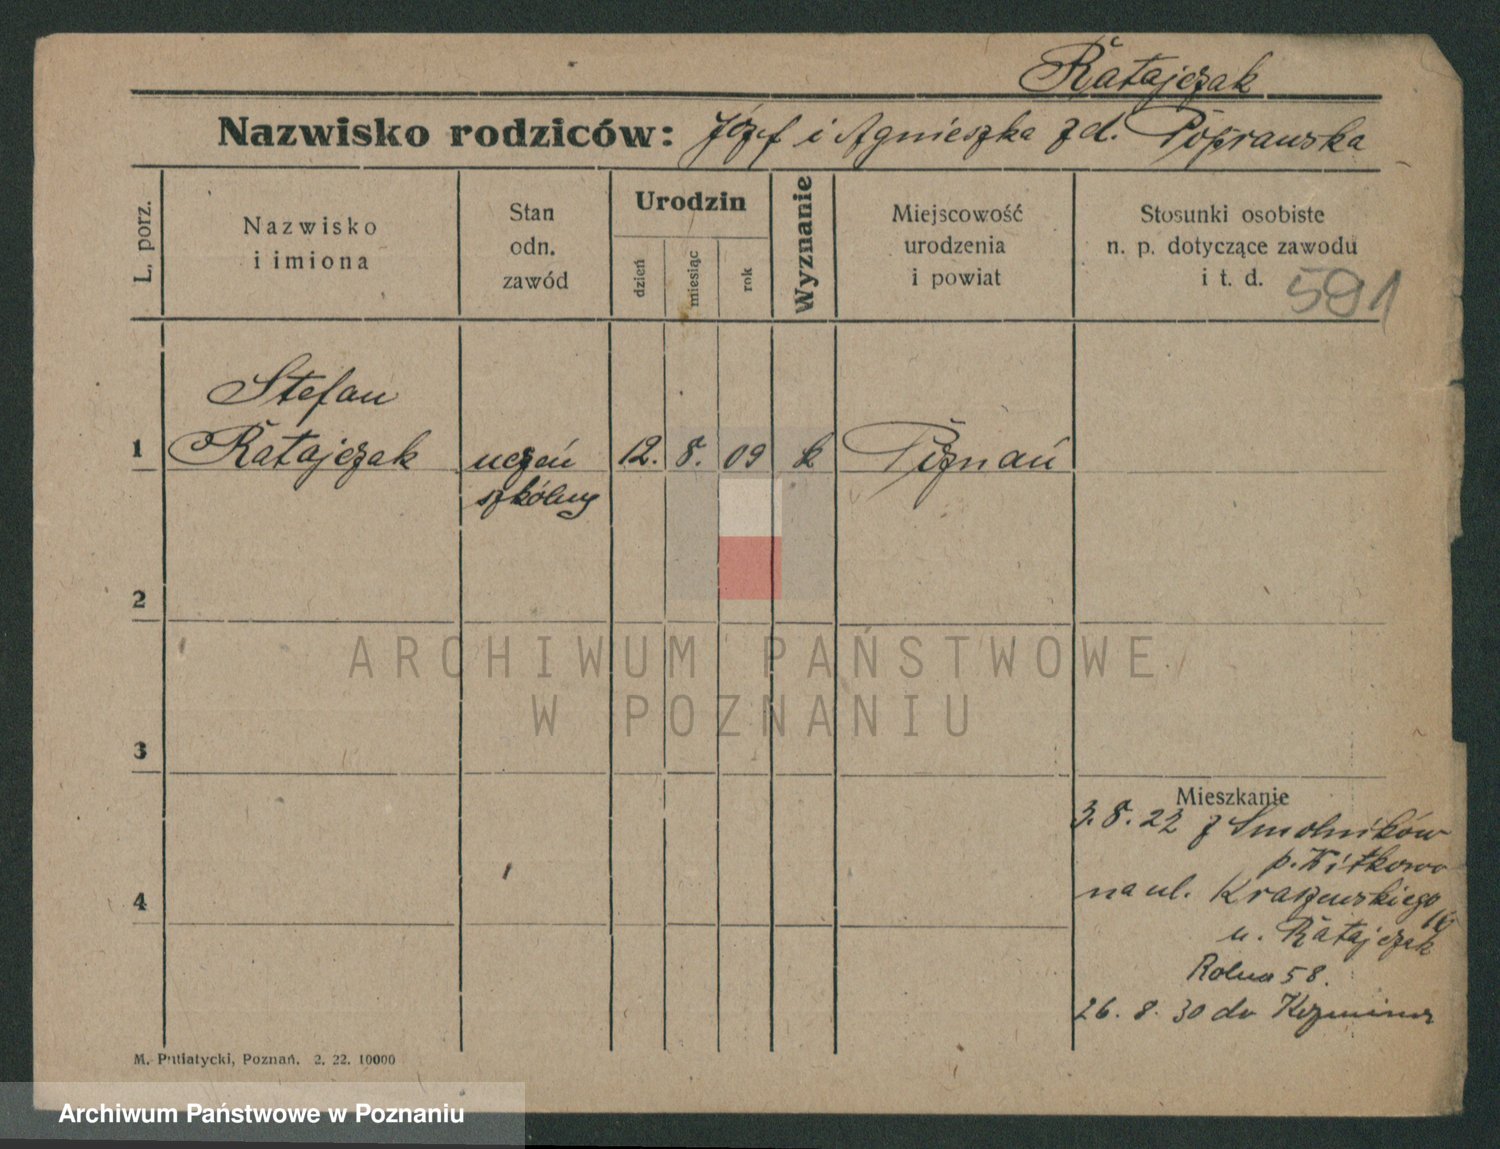 Ratajczak
Nazwisko rodziców: Józef i Agnieszka z d. Poprawska
L. porz.
Nazwisko
i imiona
Stan
odn.
zawód
Urodzin
dzień
miesiąc
rok
Wyznanie
Miejscowość
urodzenia
i powiat
Stosunki osobiste
n. p. dotyczące zawodu
i t. d.
591
Stefan
1 Ratajczak uczeń 12. 8. 09 k Poznań
szkólny
2
ARCHIWUM PAŃSTWOWE
W POZNANIU
3
Mieszkanie
3. 8. 22 z Smolników
p. Witkowo
4
na ul. Kraszewskiego
u. Ratajczak
Rolna 58.
26. 8. 30 do Koźmina
M. Putiatycki, Poznań. 2. 22. 10000
Archiwum Państwowe w Poznaniu